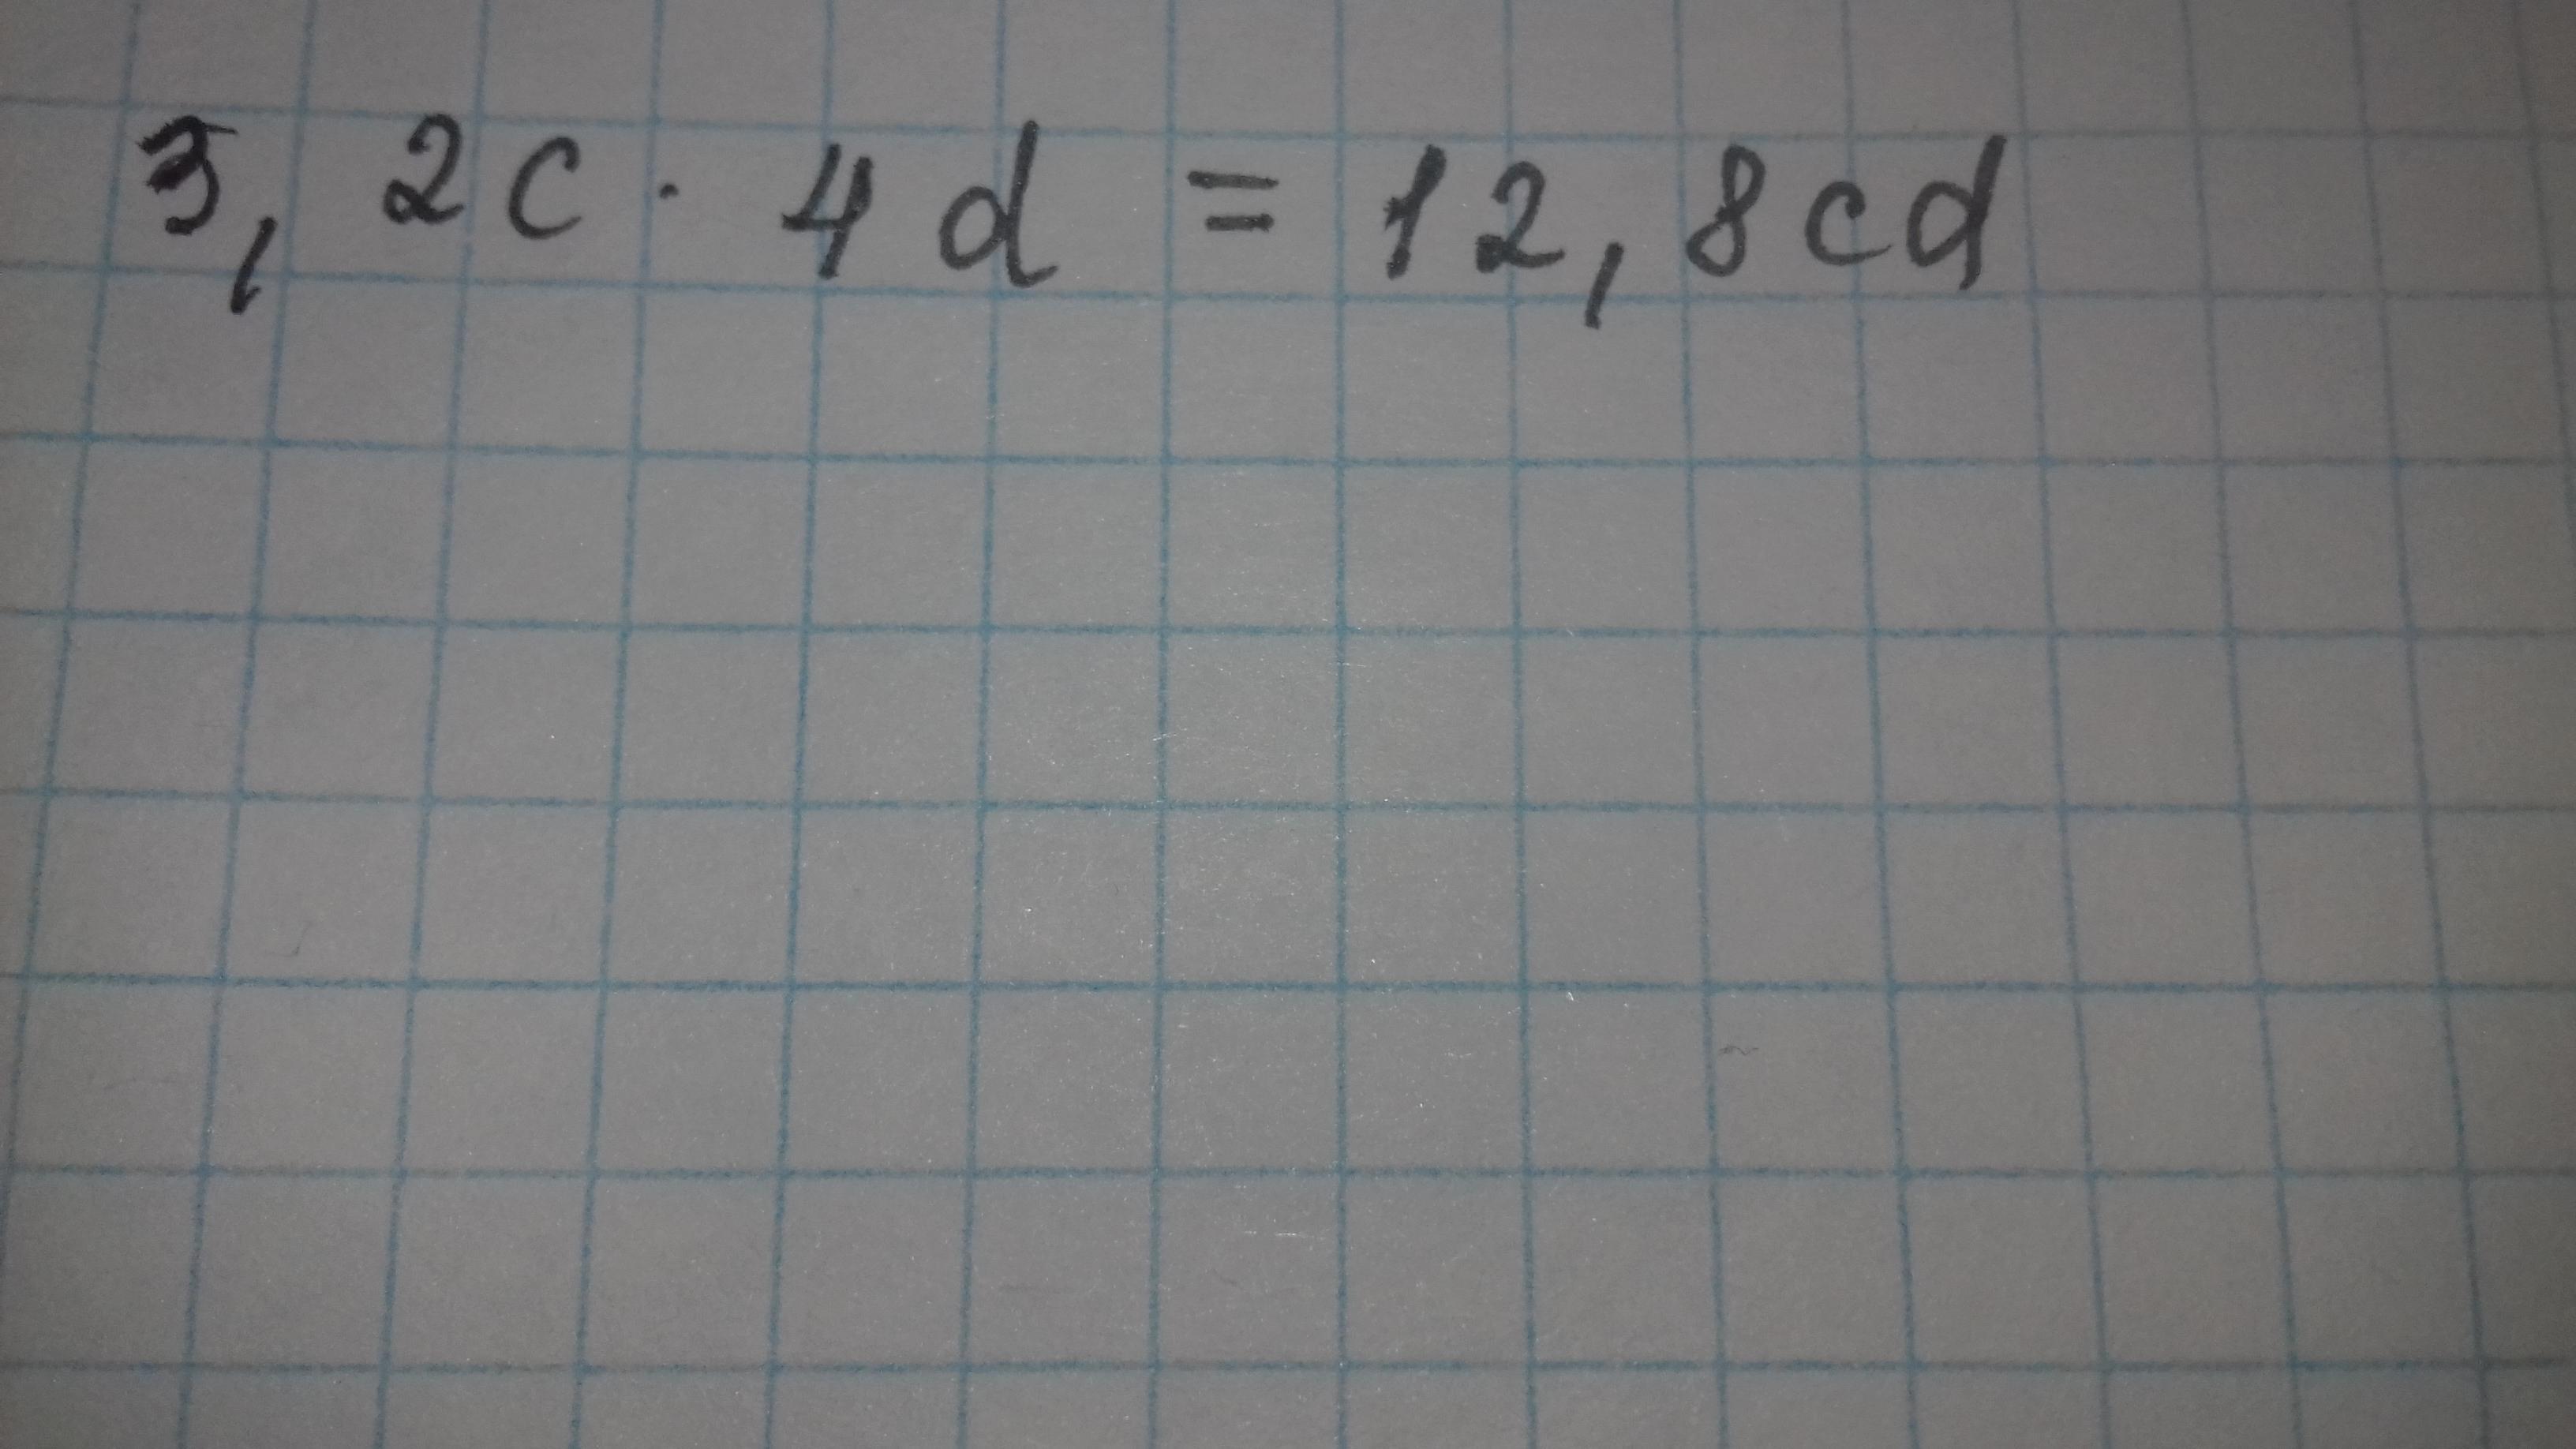 3,2c · 4d = 12,8cd